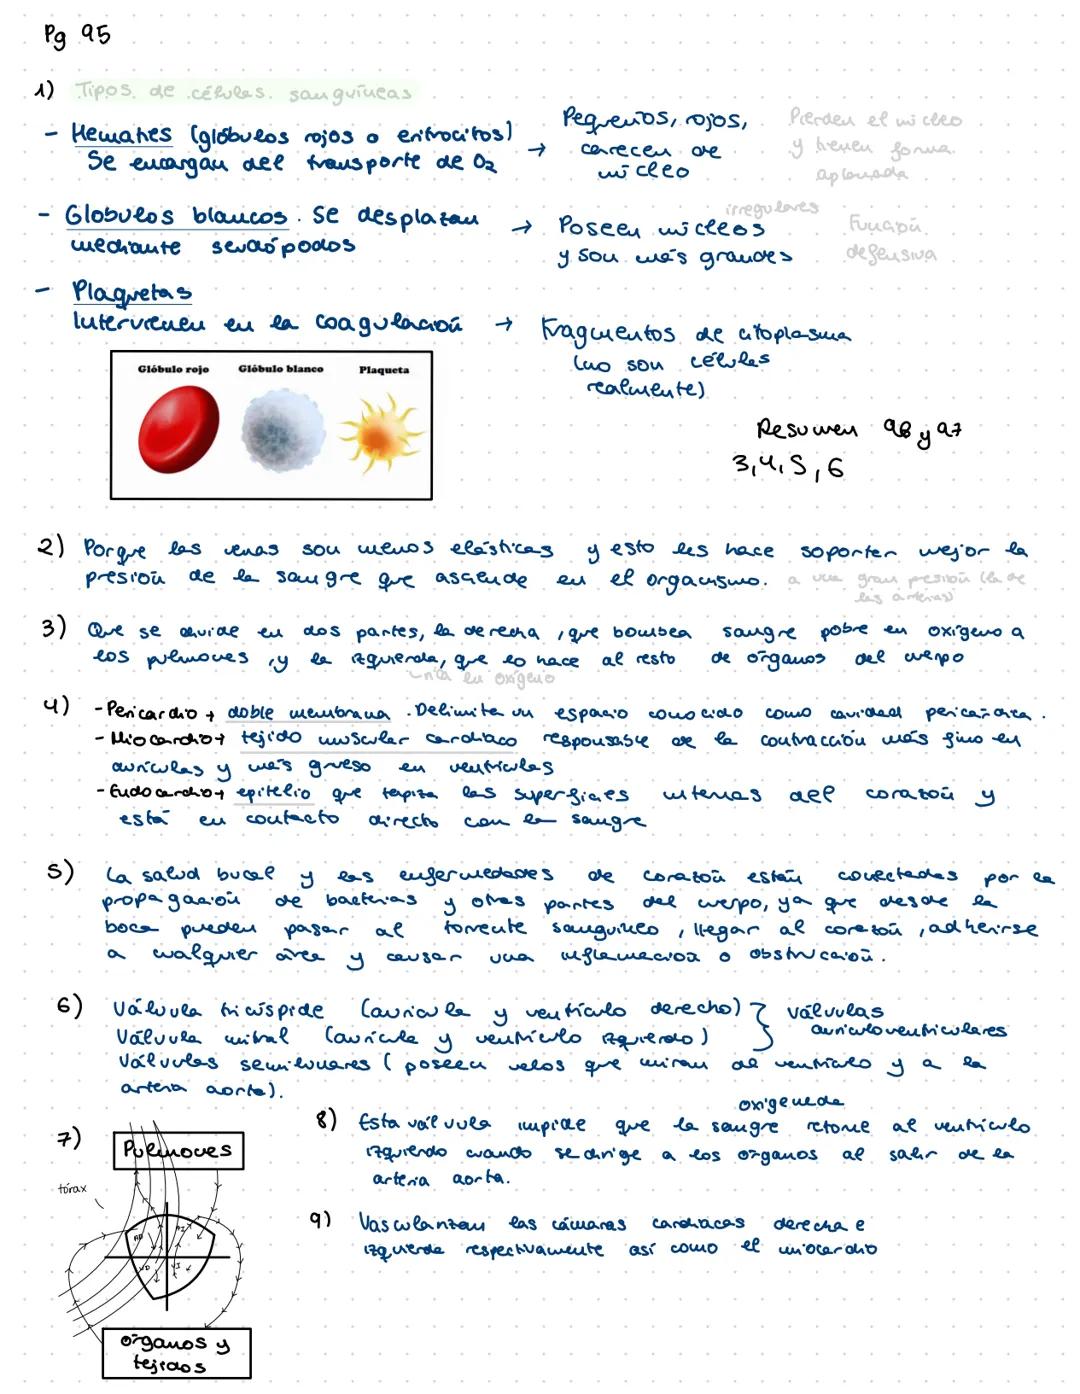 Pg 95
1) Tipos de células sanguíneas
- Hematíes (glóbulos rojos o eritrocitos) → Pequeños, rojos, Pierden el núcleo
Se encargan del transporte de O2 carecen de y tienen forma
núcleo aplanada
irregulares
- Globulos blancos. Se desplazan → Poseen núcleos Función
mediante seudópodos y son más grandes defensiva
- Plaquetas
Intervienen en la coagulación → Fragmentos de citoplasma
(no son células
realmente)
Glóbulo rojo Glóbulo blanco Plaqueta
Resumen 98 y 97
3,4,5,6
2) Porque las venas son menos elásticas y esto les hace soportar mejor la
presión de la sangre que asciende en el organismo. a una gran presión (la de
las arterias)
3) Que se divide en dos partes, la derecha, que bombea sangre pobre en oxígeno a
los pulmones, y la izquierda, que lo hace al resto de órganos del cuerpo
rica en oxígeno
4) - Pericardio → doble membrana. Delimita un espacio conocido como cavidad pericárdica.
- Miocardio → tejido muscular cardíaco responsable de la contracción más fino en
aurículas y más grueso en ventrículos
- Endocardio → epitelio que tapiza las superficies internas del corazón y
está en contacto directo con la sangre
5) La salud bucal y las enfermedades de corazón están conectadas por la
propagación de bacterias y otras partes del cuerpo, ya que desde la
boca pueden pasar al torrente sanguíneo, llegar al corazón, adherirse
a cualquier área y causar una inflamación o obstrucción.
6) Válvula tricúspide (aurícula y ventrículo derecho) } válvulas
Válvula mitral (aurícula y ventrículo izquierdo) auriculoventriculares
Válvulas semilunares (poseen velos que miran al ventrículo y a la
arteria aorta).
7) Pulmones
tórax
AD AI
VD VI
órganos y
tejidos
oxigenada
8) Esta válvula impide que la sangre retorne al ventrículo
izquierdo cuando se dirige a los órganos al salir de la
arteria aorta.
9) Vascularizan las cámaras cardíacas derecha e
izquierda respectivamente así como el miocardio